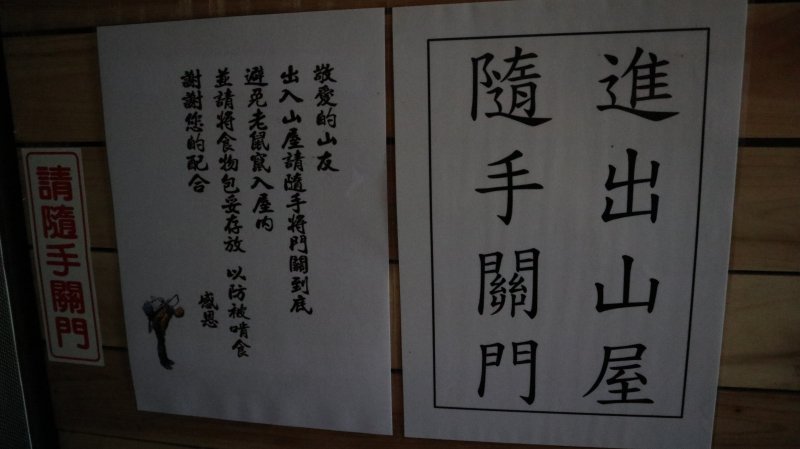 進出山屋
隨手關門
敬愛的山友
出入山屋請隨手將門關到底
避免老鼠竄入屋內
並請將食物包妥存放 以防被啃食
謝謝您的配合
感恩
請隨手關門